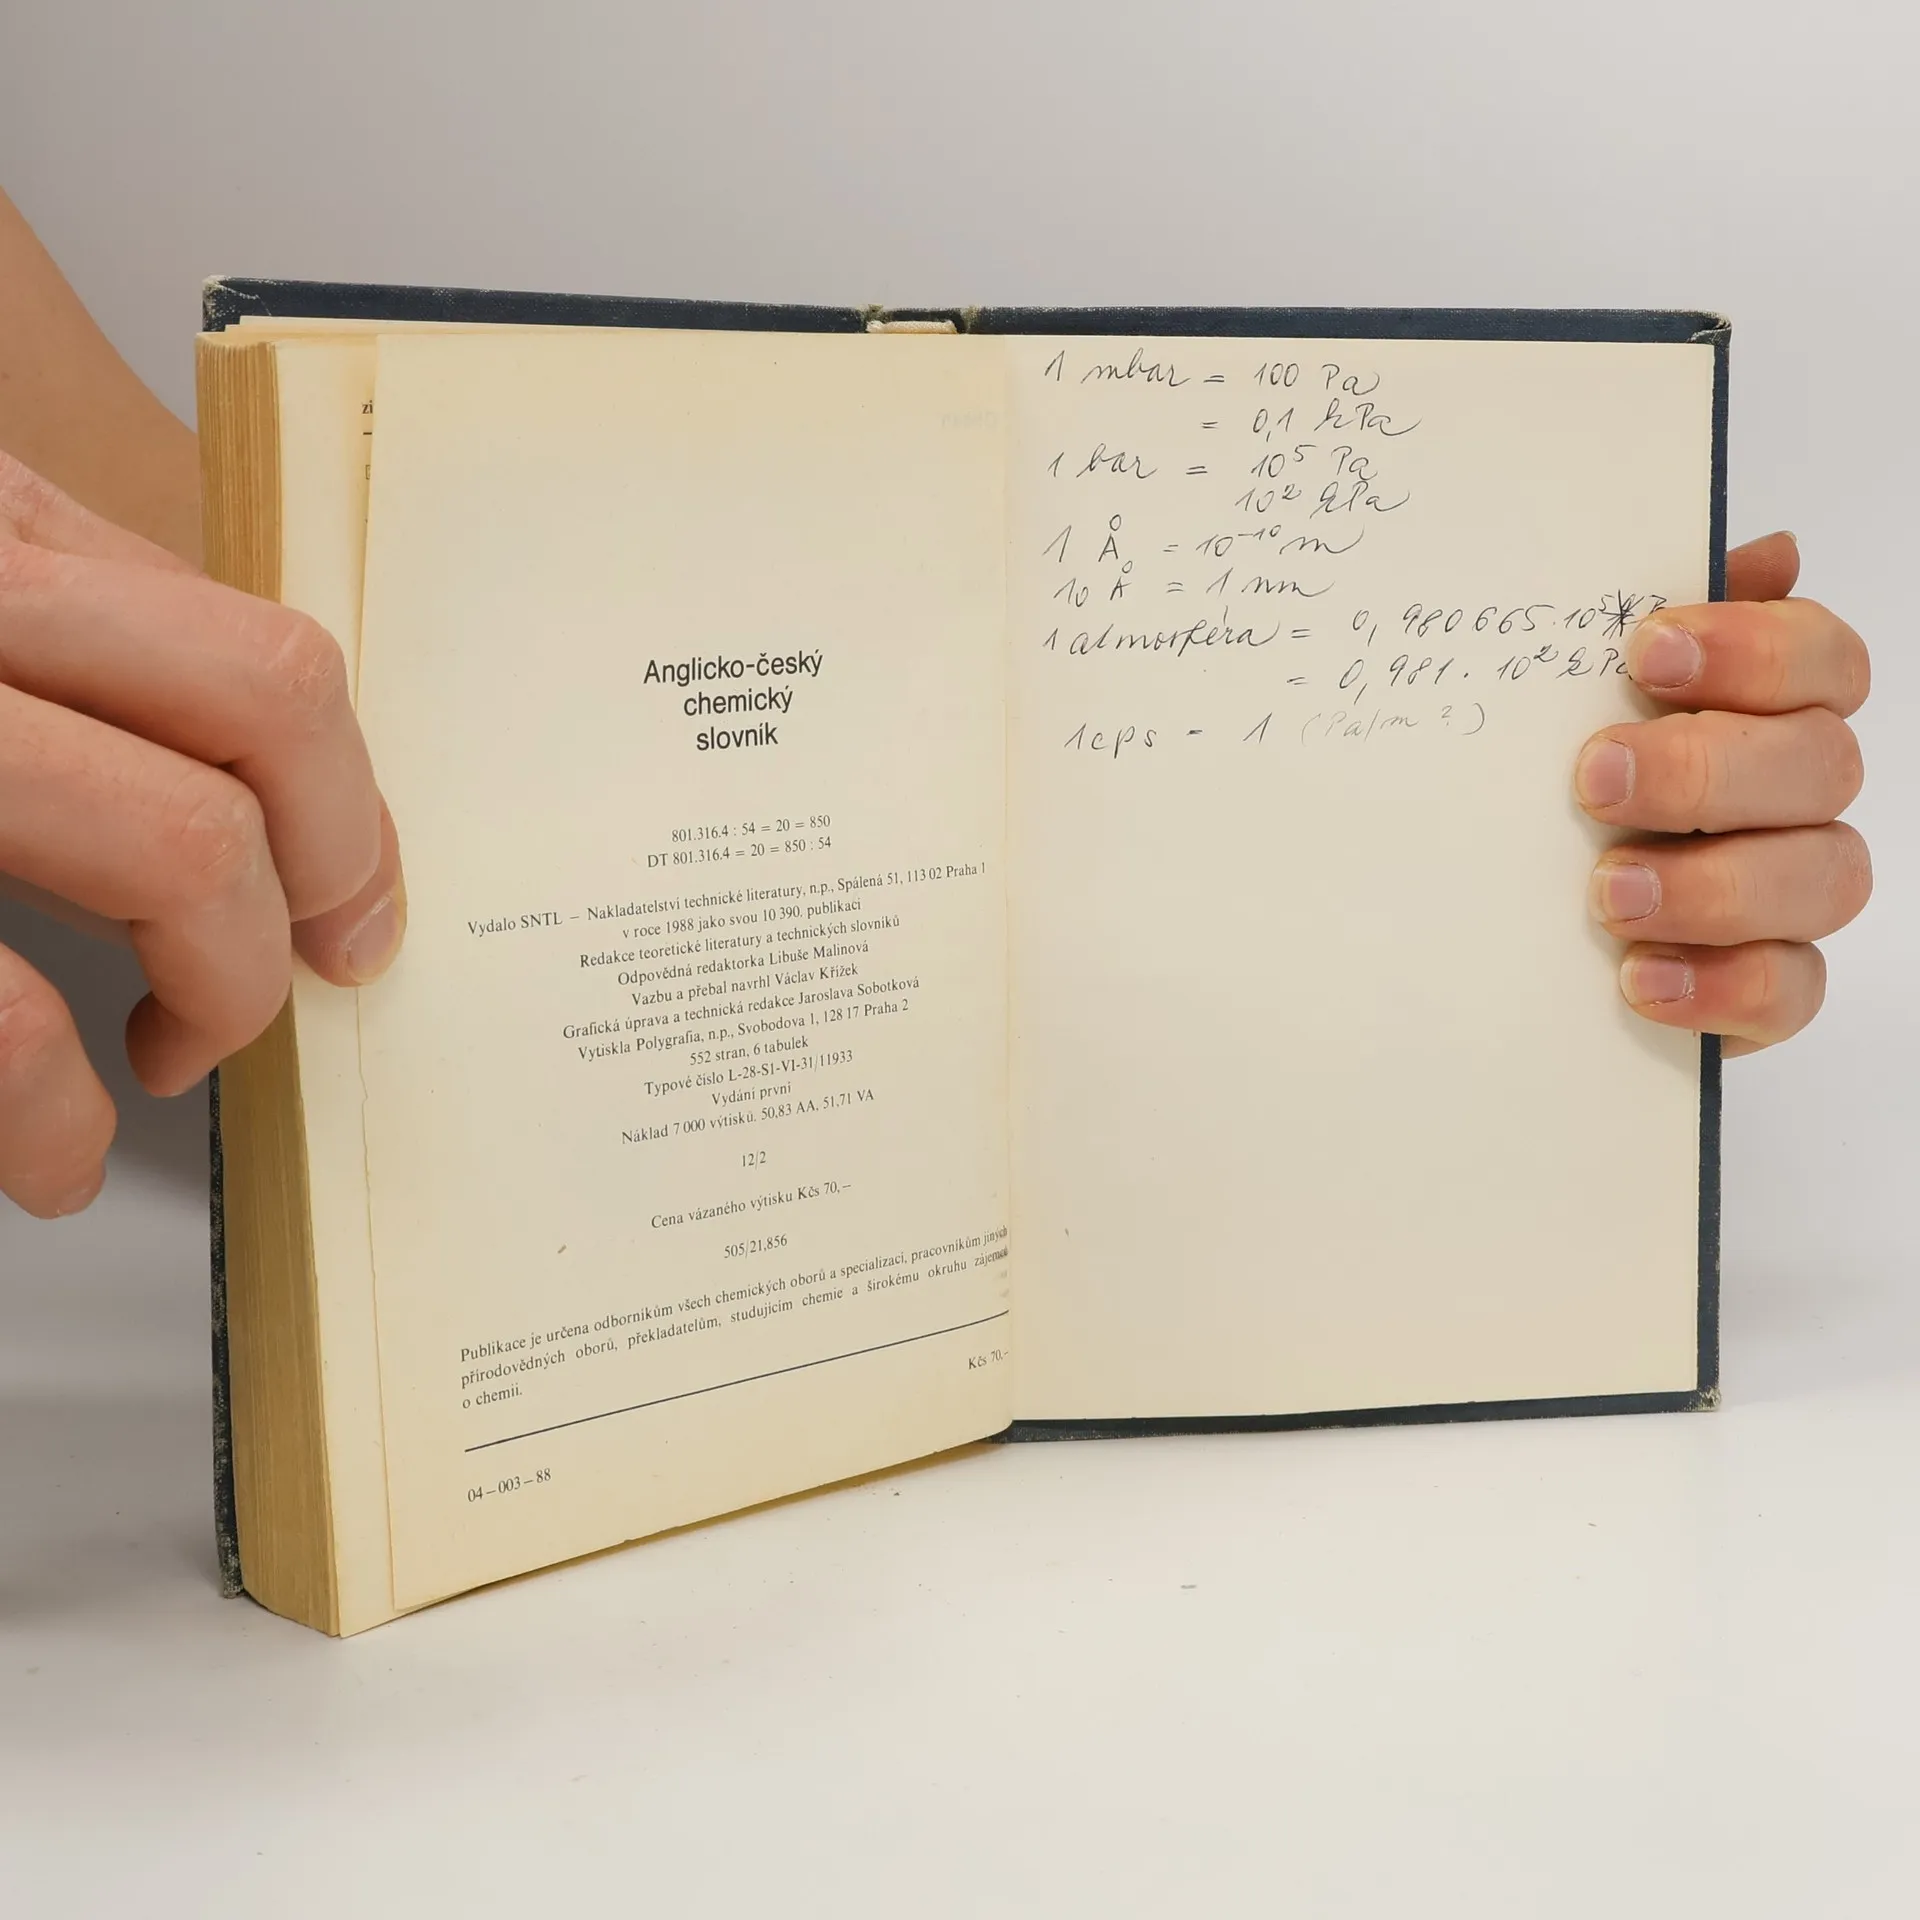 zi
Anglicko-český
chemický
slovník
801.316.4 : 54 = 20 = 850
DT 801.316.4 = 20 = 850 : 54
Vydalo SNTL – Nakladatelství technické literatury, n.p., Spálená 51, 113 02 Praha 1
v roce 1988 jako svou 10 390. publikaci
Redakce teoretické literatury a technických slovníků
Odpovědná redaktorka Libuše Malinová
Vazbu a přebal navrhl Václav Křížek
Grafická úprava a technická redakce Jaroslava Sobotková
Vytiskla Polygrafia, n.p., Svobodova 1, 128 17 Praha 2
552 stran, 6 tabulek
Typové číslo L-28-S1-VI-31/11933
Vydání první
Náklad 7 000 výtisků. 50,83 AA, 51,71 VA
12/2
Cena vázaného výtisku Kčs 70,–
505/21,856
Publikace je určena odborníkům všech chemických oborů a specializací, pracovníkům jiných
přírodovědných oborů, překladatelům, studujícím chemie a širokému okruhu zájemců
o chemii.
Kčs 70,–
04–003–88
1 mbar = 100 Pa
= 0,1 kPa
1 bar = 10⁵ Pa
10² kPa
1 Å = 10⁻¹⁰ m
10 Å = 1 nm
1 atmosféra = 0,980665.10⁵ P
= 0,981 . 10² kPa
1cps = 1 (Pa/m ?)